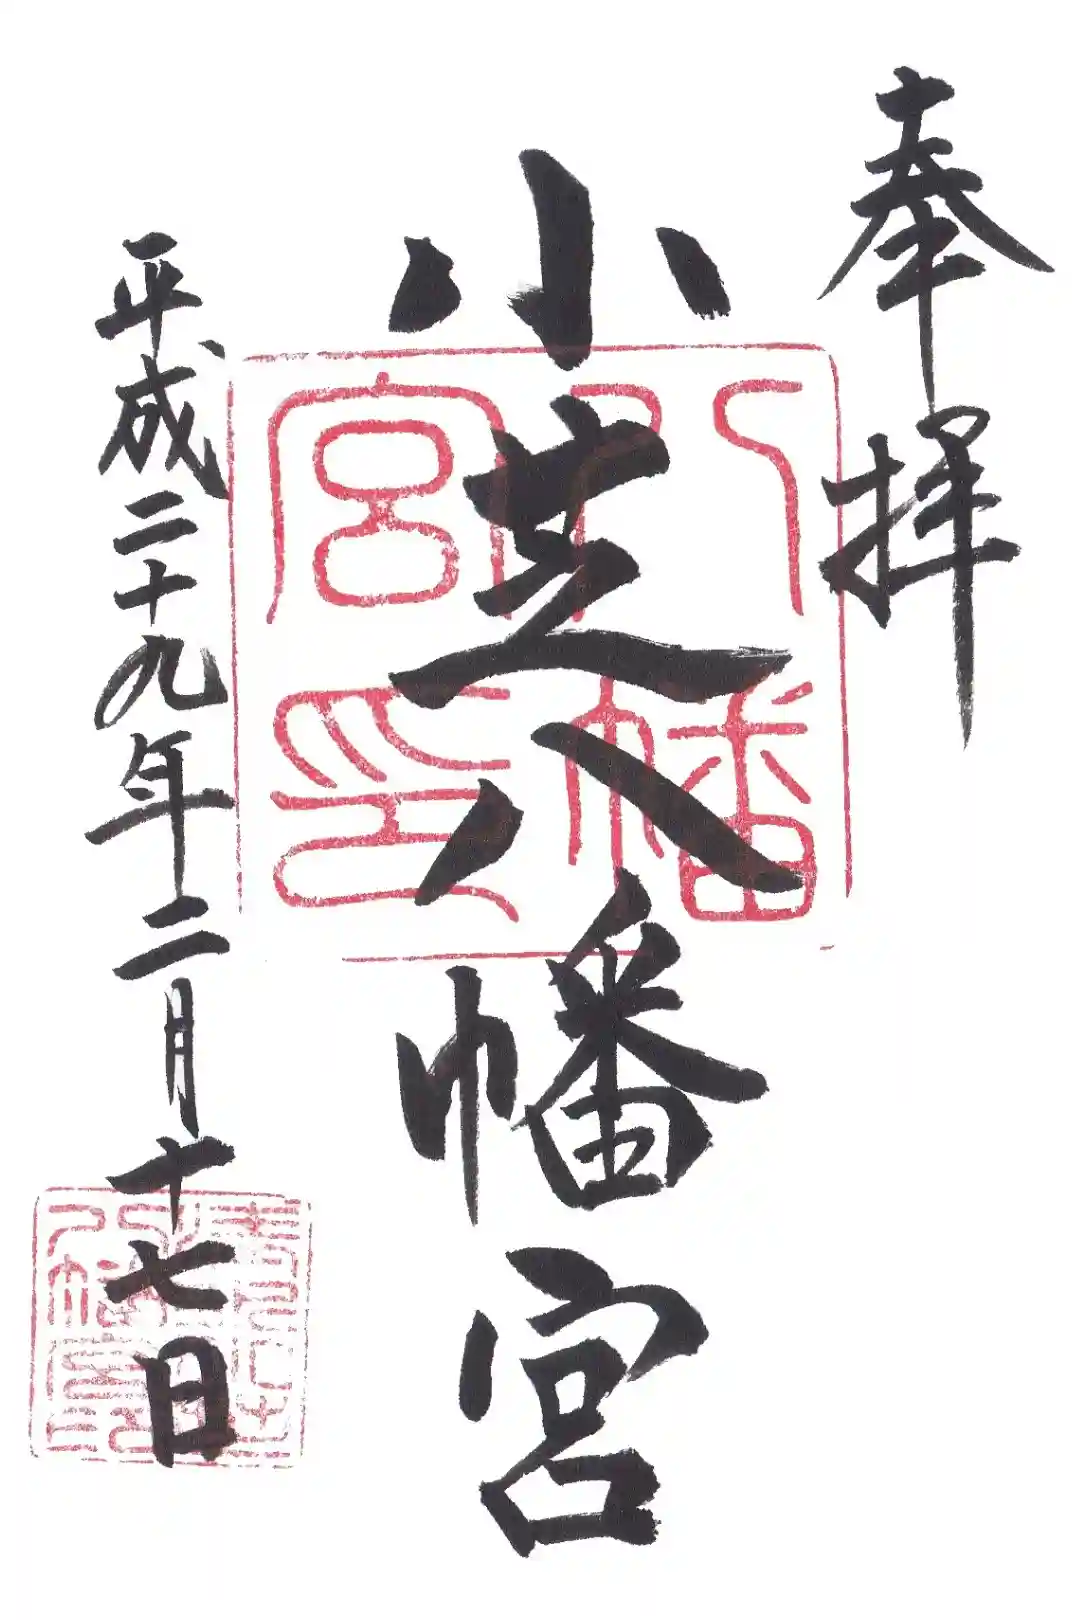 奉拝
小芝八幡宮
八幡宮印
平成二十九年二月十七日